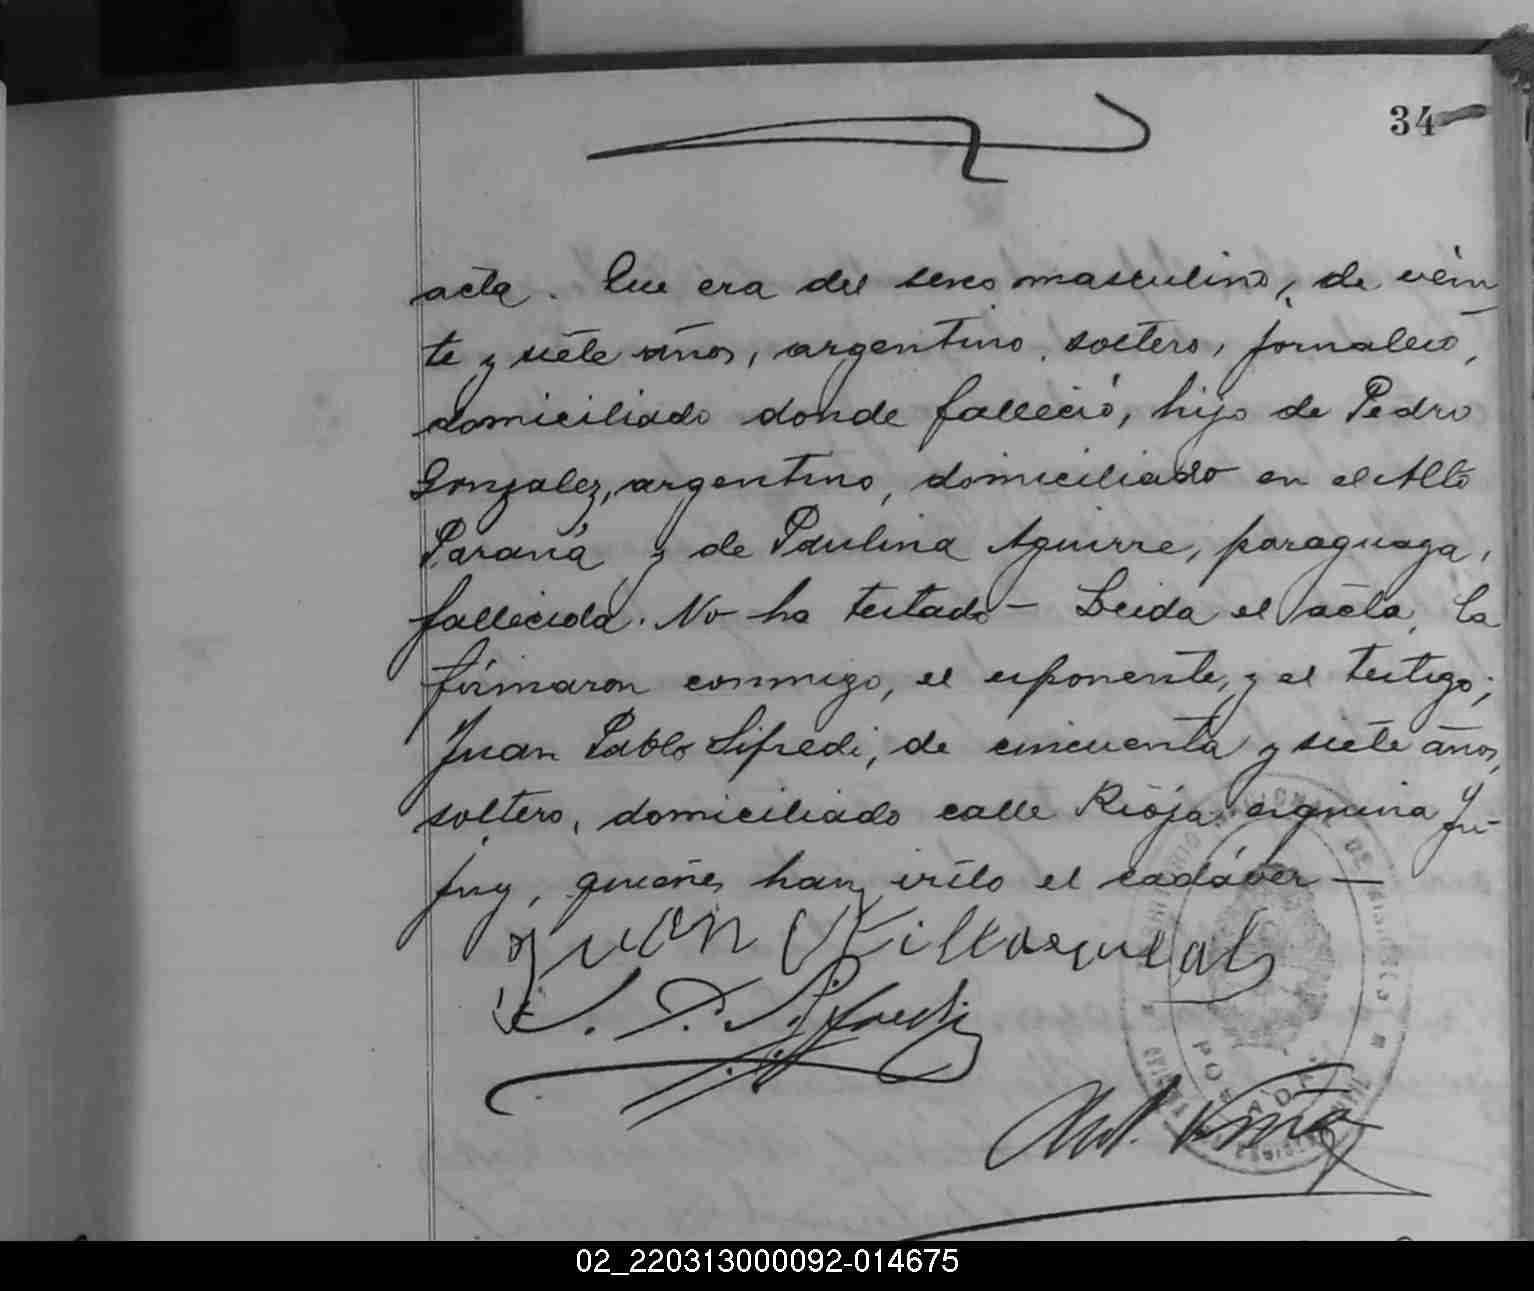 34
acta. Que era del sexo masculino, de vein
te y siete años, argentino, soltero, jornalero,
domiciliado donde falleció, hijo de Pedro
Gonzalez, argentino, domiciliado en el Alto
Paraná y de Paulina Aguirre, paraguaya,
fallecida. No ha testado — Leida el acta, la
firmaron conmigo, el exponente, y el testigo;
Juan Pablo Sifredi, de cincuenta y siete años,
soltero, domiciliado calle Rioja esquina Ju-
juy, quienes han visto el cadáver —
Juan Villasqual
J. P. Sifredi
POSADAS
02_220313000092-014675